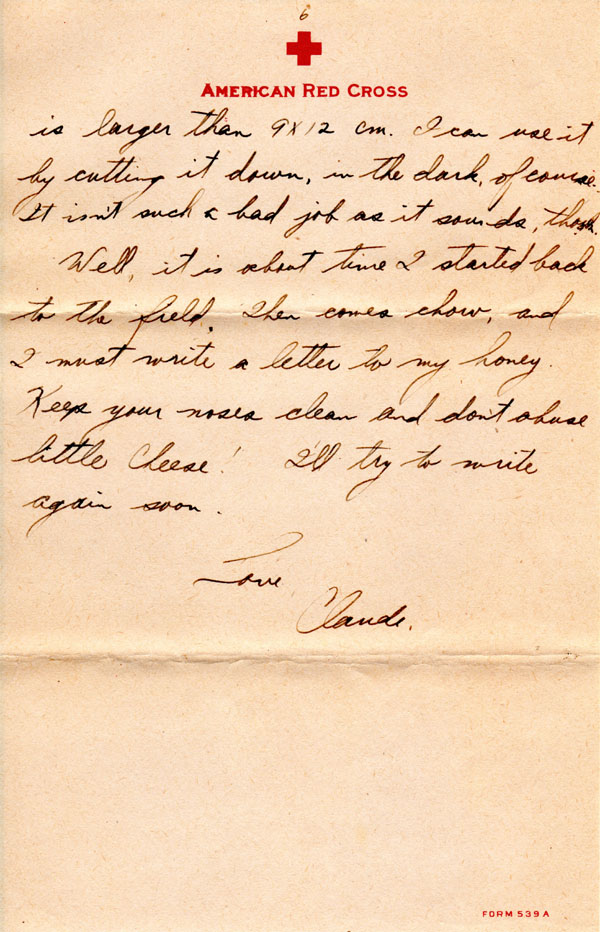 6
AMERICAN RED CROSS
is larger than 9x12 cm. I can use it
by cutting it down, in the dark, of course.
It isn't such a bad job as it sounds, though.
Well, it is about time I started back
to the field. Then comes chow, and
I must write a letter to my honey.
Keep your noses clean and don't abuse
little Cheese! I'll try to write
again soon.
Love,
Claude.
FORM 539A